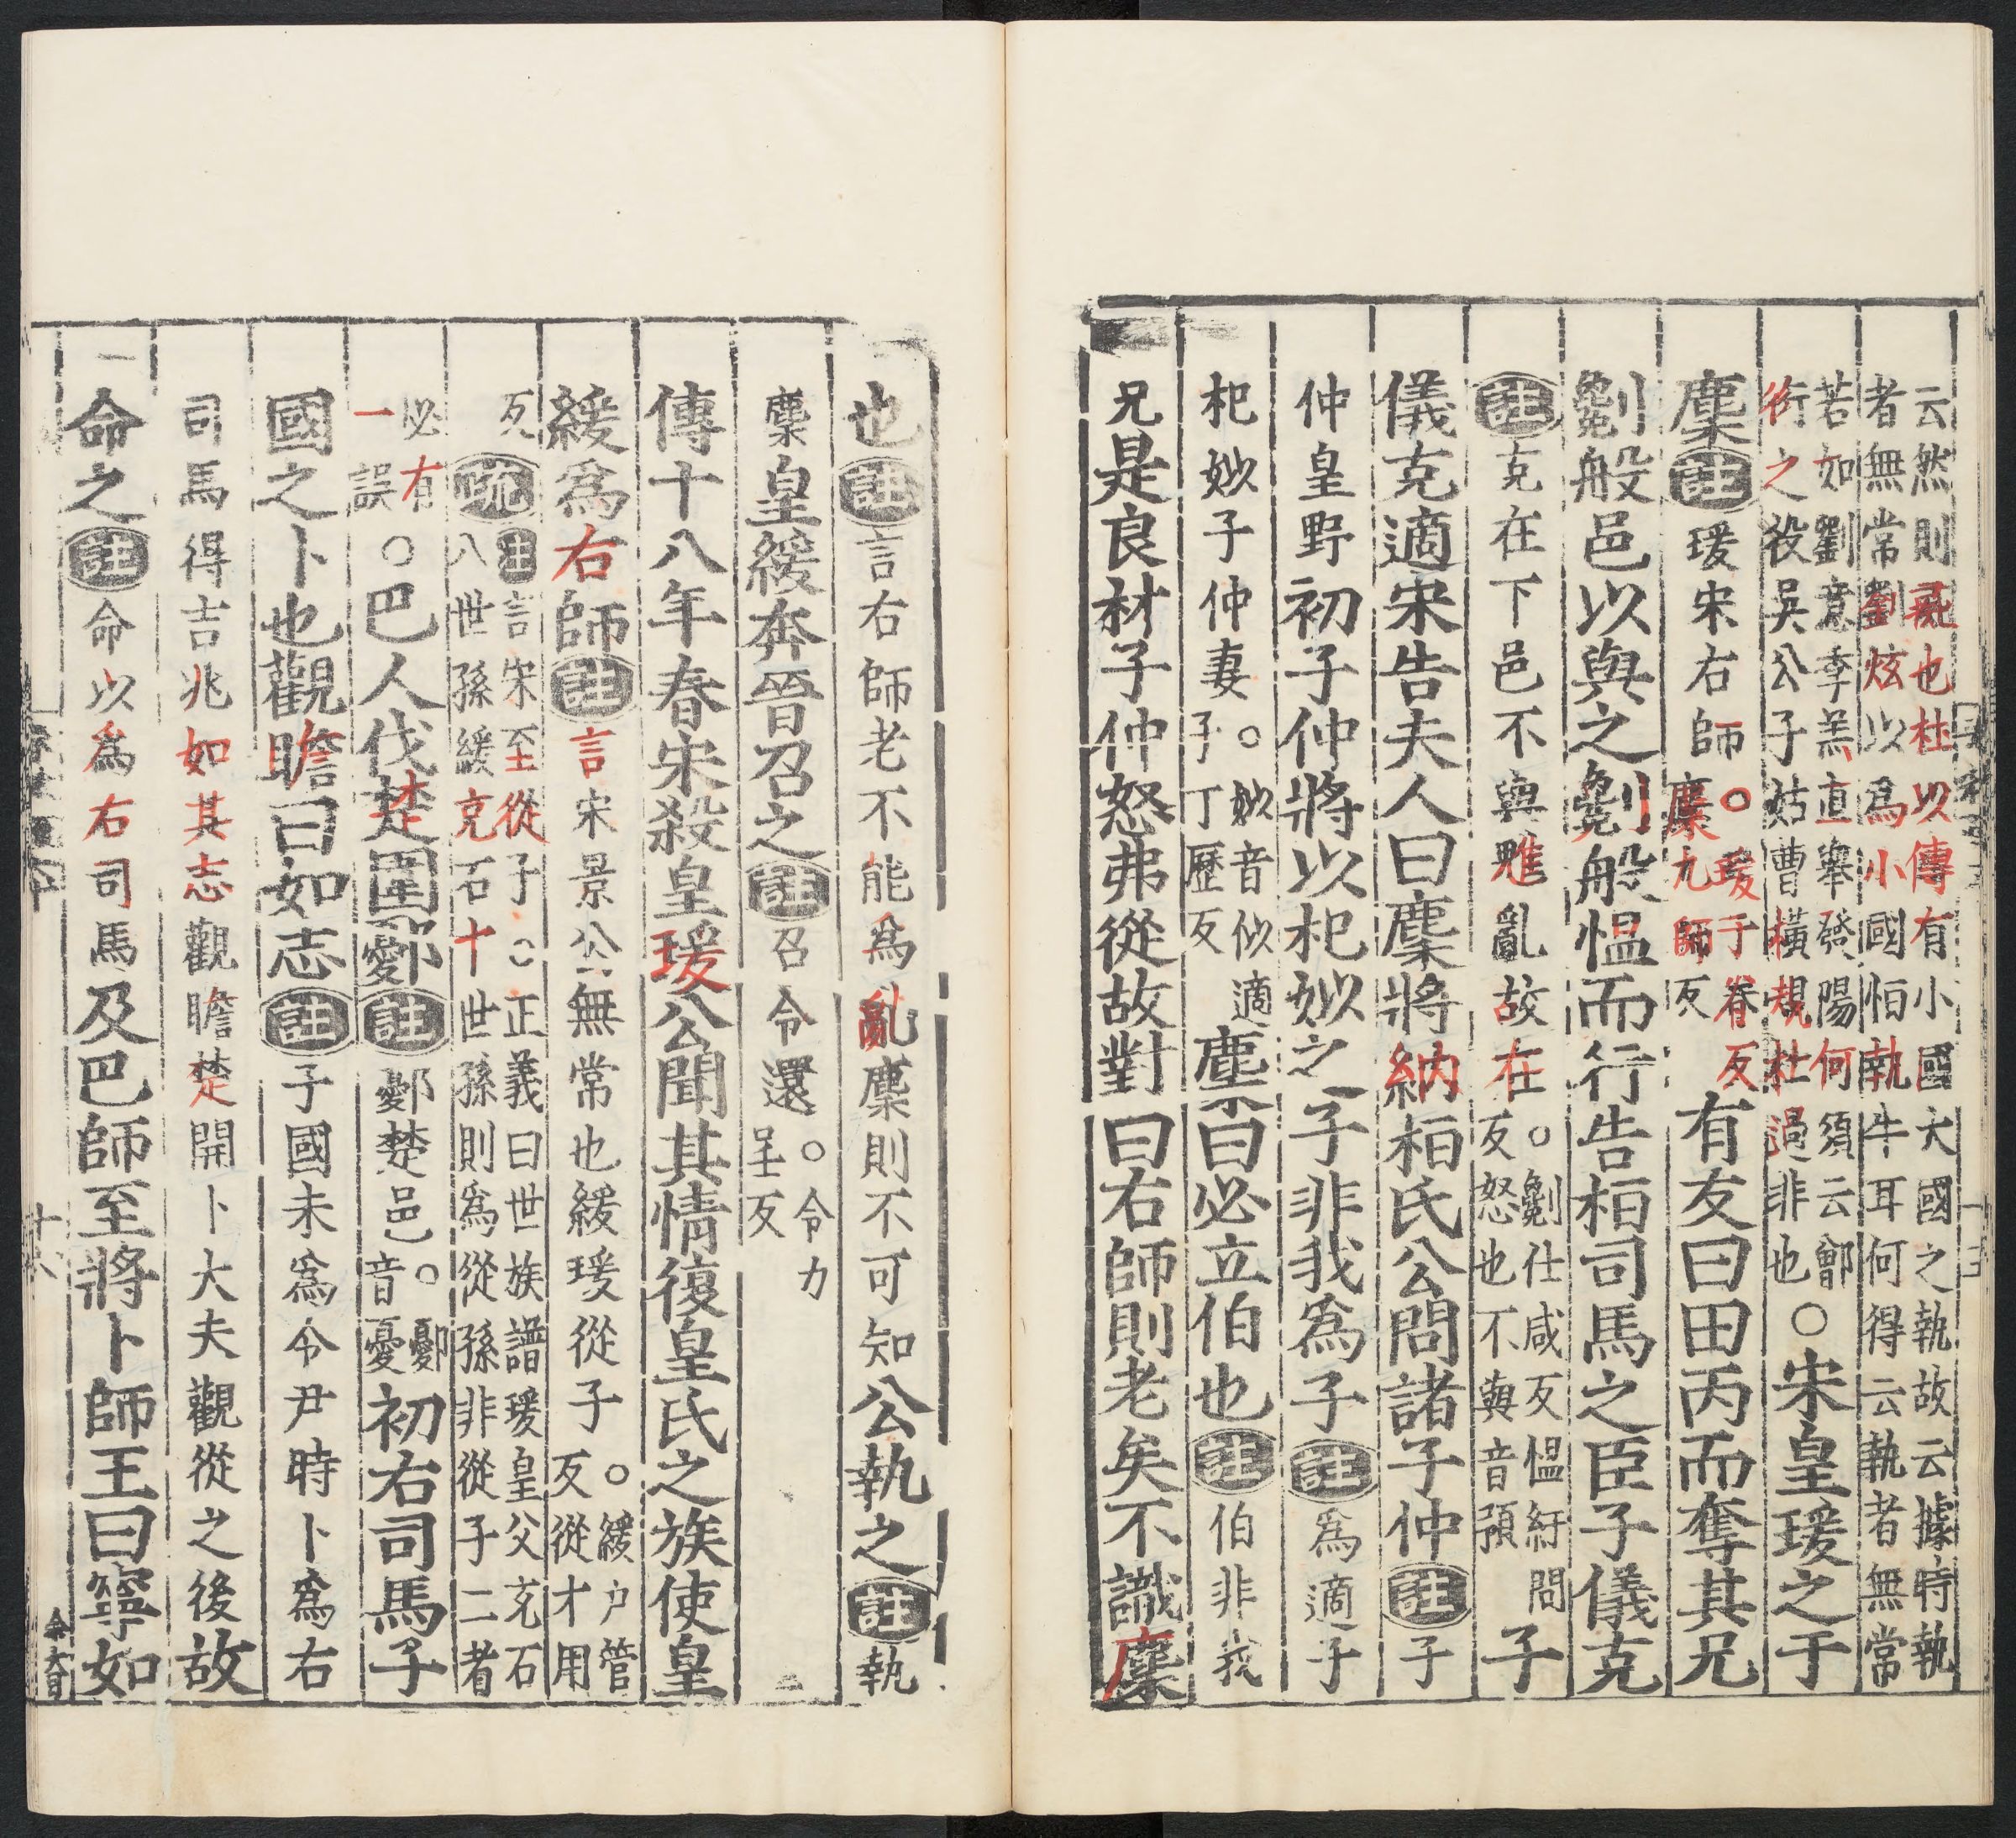 云然則彘也杜以傳有小國大國之執故云據時執
者無常劉炫以爲小國恒執牛耳何得云執者無常
若如劉意季羔直舉發陽何須云鄫衍之役吳公子姑曹橫規杜過非也○宋皇瑗之子
麇註瑗宋右師○瑗于眷反麇九師反有友曰田丙而奪其兄
劖般邑以與之劖般愠而行告桓司馬之臣子儀克
註克在下邑不與魋亂故在○劖仕咸反愠紆問反怒也不與音預子
儀克適宋告夫人曰麇將納桓氏公問諸子仲註子
仲皇野初子仲將以杞姒之子非我爲子註爲適子
杞姒子仲妻○姒音似適子丁歷反麇曰必立伯也註伯非我
兄是良材子仲怒弗從故對曰右師則老矣不識麇
也註言右師老不能爲亂麇則不可知公執之註執
麇皇緩奔晉召之註召令還○令力呈反
傳十八年春宋殺皇瑗公聞其情復皇氏之族使皇
緩爲右師註言宋景公無常也緩瑗從子○緩户管反從才用
反疏註言宋至從子○正義曰世族譜瑗皇父充石八世孫緩克石十世孫則爲從孫非從子二者
必有一誤○巴人伐楚圍鄾註鄾楚邑○鄾音憂初右司馬子
國之卜也觀瞻曰如志註子國未爲令尹時卜爲右
司馬得吉兆如其志觀瞻楚開卜大夫觀從之後故
命之註命以爲右司馬及巴師至將卜師王曰寧如